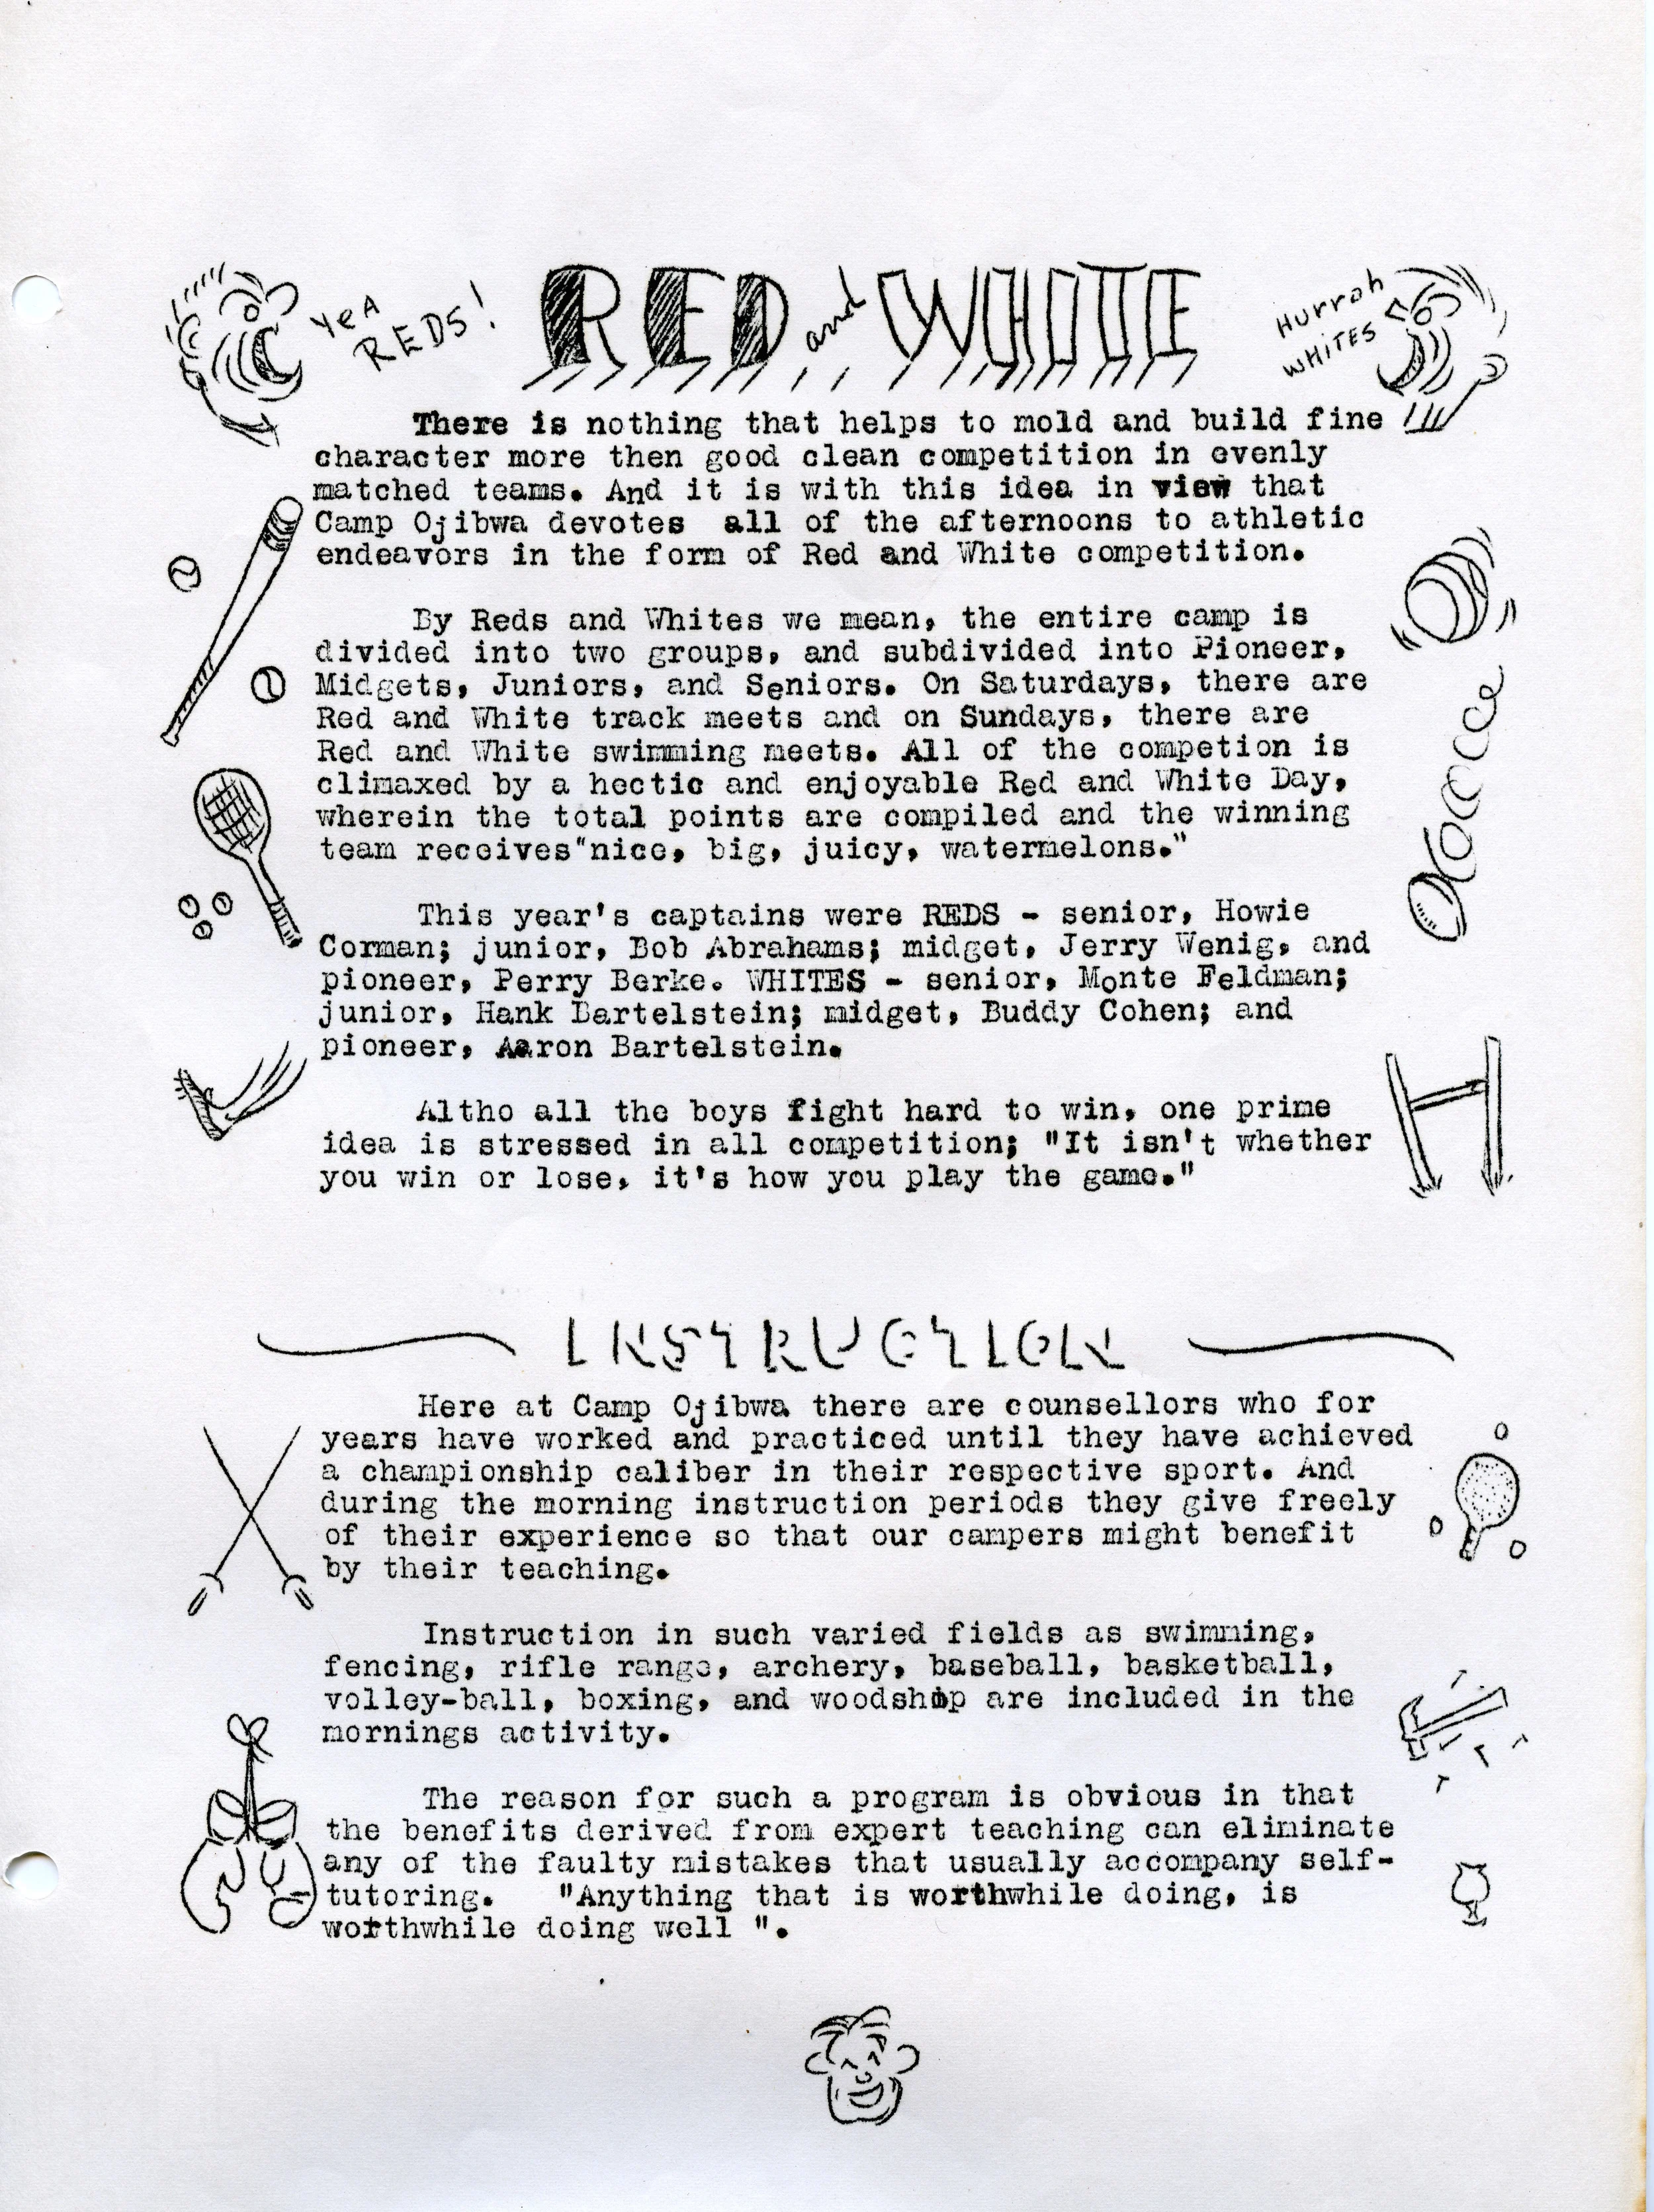 YEA
REDS!
RED and WHITE
Hurrah
WHITES
There is nothing that helps to mold and build fine
character more then good clean competition in evenly
matched teams. And it is with this idea in view that
Camp Ojibwa devotes all of the afternoons to athletic
endeavors in the form of Red and White competition.
By Reds and Whites we mean, the entire camp is
divided into two groups, and subdivided into Pioneer,
Midgets, Juniors, and Seniors. On Saturdays, there are
Red and White track meets and on Sundays, there are
Red and White swimming meets. All of the competion is
climaxed by a hectic and enjoyable Red and White Day,
wherein the total points are compiled and the winning
team receives"nice, big, juicy, watermelons."
This year's captains were REDS - senior, Howie
Corman; junior, Bob Abrahams; midget, Jerry Wenig, and
pioneer, Perry Berke. WHITES - senior, Monte Feldman;
junior, Hank Bartelstein; midget, Buddy Cohen; and
pioneer, Aaron Bartelstein.
Altho all the boys fight hard to win, one prime
idea is stressed in all competition; "It isn't whether
you win or lose, it's how you play the game."
INSTRUCTION
Here at Camp Ojibwa there are counsellors who for
years have worked and practiced until they have achieved
a championship caliber in their respective sport. And
during the morning instruction periods they give freely
of their experience so that our campers might benefit
by their teaching.
Instruction in such varied fields as swimming,
fencing, rifle range, archery, baseball, basketball,
volley-ball, boxing, and woodshop are included in the
mornings activity.
The reason for such a program is obvious in that
the benefits derived from expert teaching can eliminate
any of the faulty mistakes that usually accompany self-
tutoring. "Anything that is worthwhile doing, is
worthwhile doing well ".